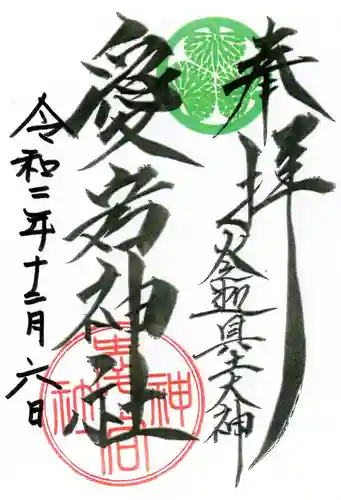 奉拝
火之迦具土大神
愛宕神社
令和二年十二月六日
愛宕神社